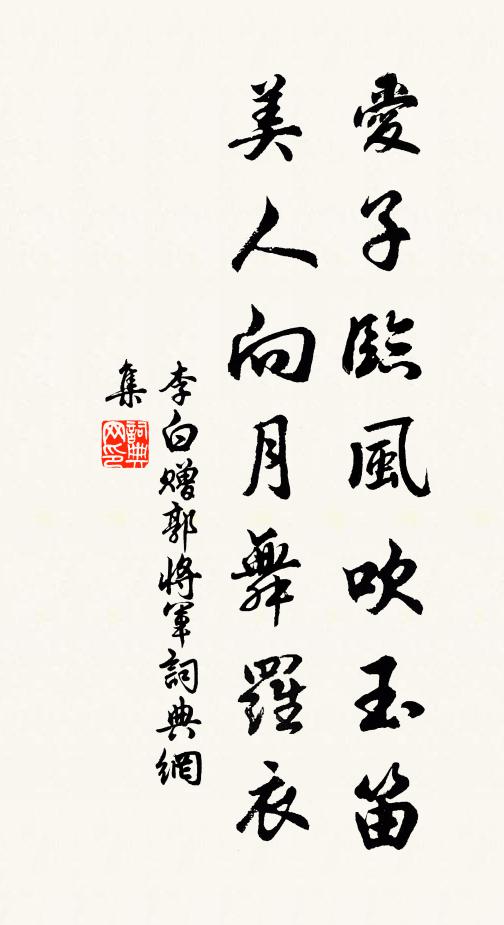 愛子臨風吹玉笛
美人向月舞羅衣
李白贈郭將軍詞典網
集
詞典
网印